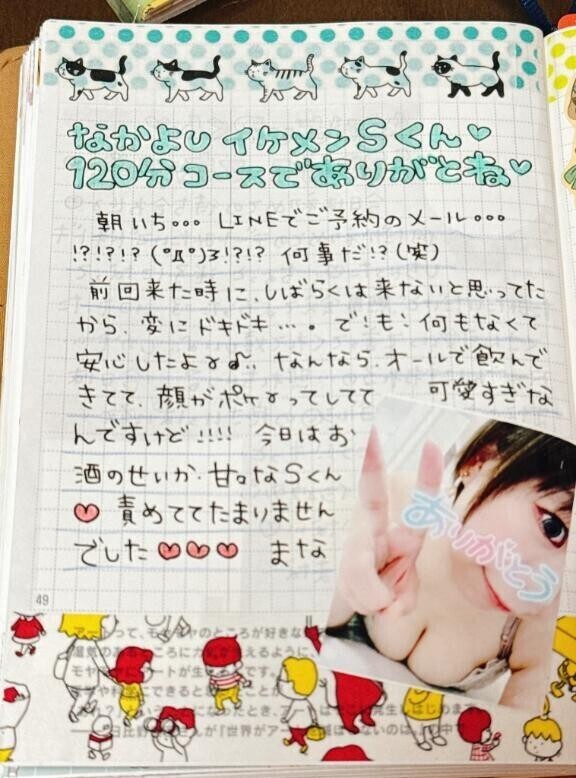 なかよしイケメンSくん♡
120分コースでありがとね♡
朝いち… LINEでご予約のメール…
!?!?!?(°Д°)3!?!? 何事だ!?(笑)
前回来た時に、しばらくは来ないと思ってた
から、変にドキドキ…。で！も！何もなくて
安心したよ〜♪。なんなら、オールで飲んで
きてて、顔がポケ〜ってしてて 可愛すぎな
んですけど!!!! 今日はお
酒のせいか、甘々なSくん
♡責めててたまりません
でした♡♡♡ まな
ありがとう
49
アートって、モヤモヤのところが好きな
湿気のあるところに
モヤ